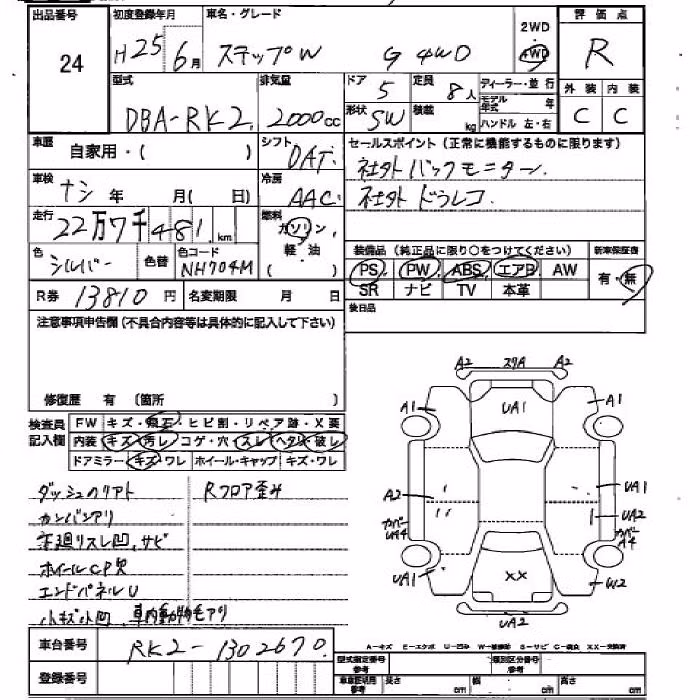 出品番号 初度登録年月 車名・グレード 2WD 評価点
24 H25 6月 ステップW G 4WD 4WD R
型式 排気量 ドア 5 定員 8人 ディーラー・並行 外装 内装
DBA-RK2 2000cc 形状 SW 積載 kg モデル年式 年 ハンドル 左・右 C C
車歴 自家用・( ) シフト DAT セールスポイント (正常に機能するものに限ります)
車検 ナシ 年 月( 日) 冷房 AAC 社外バックモニター
走行 22万7千481km 燃料 ガソリン, 軽・油 ( ) 社外ドラレコ
色 シルバー 色替 色コード NH704M 装備品 (純正品に限り○をつけてください) 新車保証書
PS PW ABS エアB AW 有・無
SR ナビ TV 本革
R券 13810円 名変期限 月 日 後日品
注意事項申告欄 (不具合内容等は具体的に記入して下さい)
修復歴 有 〔箇所 〕
検査員記入欄 FW キズ・飛石・ヒビ割・リペア跡・X要
内装 キズ・汚レ・コゲ・穴・スレ・ヘタリ・破レ
ドアミラー キズ・ワレ ホイール・キャップ キズ・ワレ
ダッシュのリアト Rフロア歪み
カンバンアリ
下廻リスレ凹,サビ
ホイールCP欠
エンドパネルU
小キズ小凹 車内動物毛アリ
A2 スリA A2
A1 UA1 A1
A2 UA1
カバー UA4 UA2
カバー A4
UA1 XX W2
UA2
車台番号 RK2-1302670
A-キズ E-エクボ U-凹み W-補修跡 S-サビ C-腐食 XX-交換済
登録番号 型式指定番号 参考 類別区分番号 参考
車庫証明用 参考 長さ cm 幅 cm 高さ cm